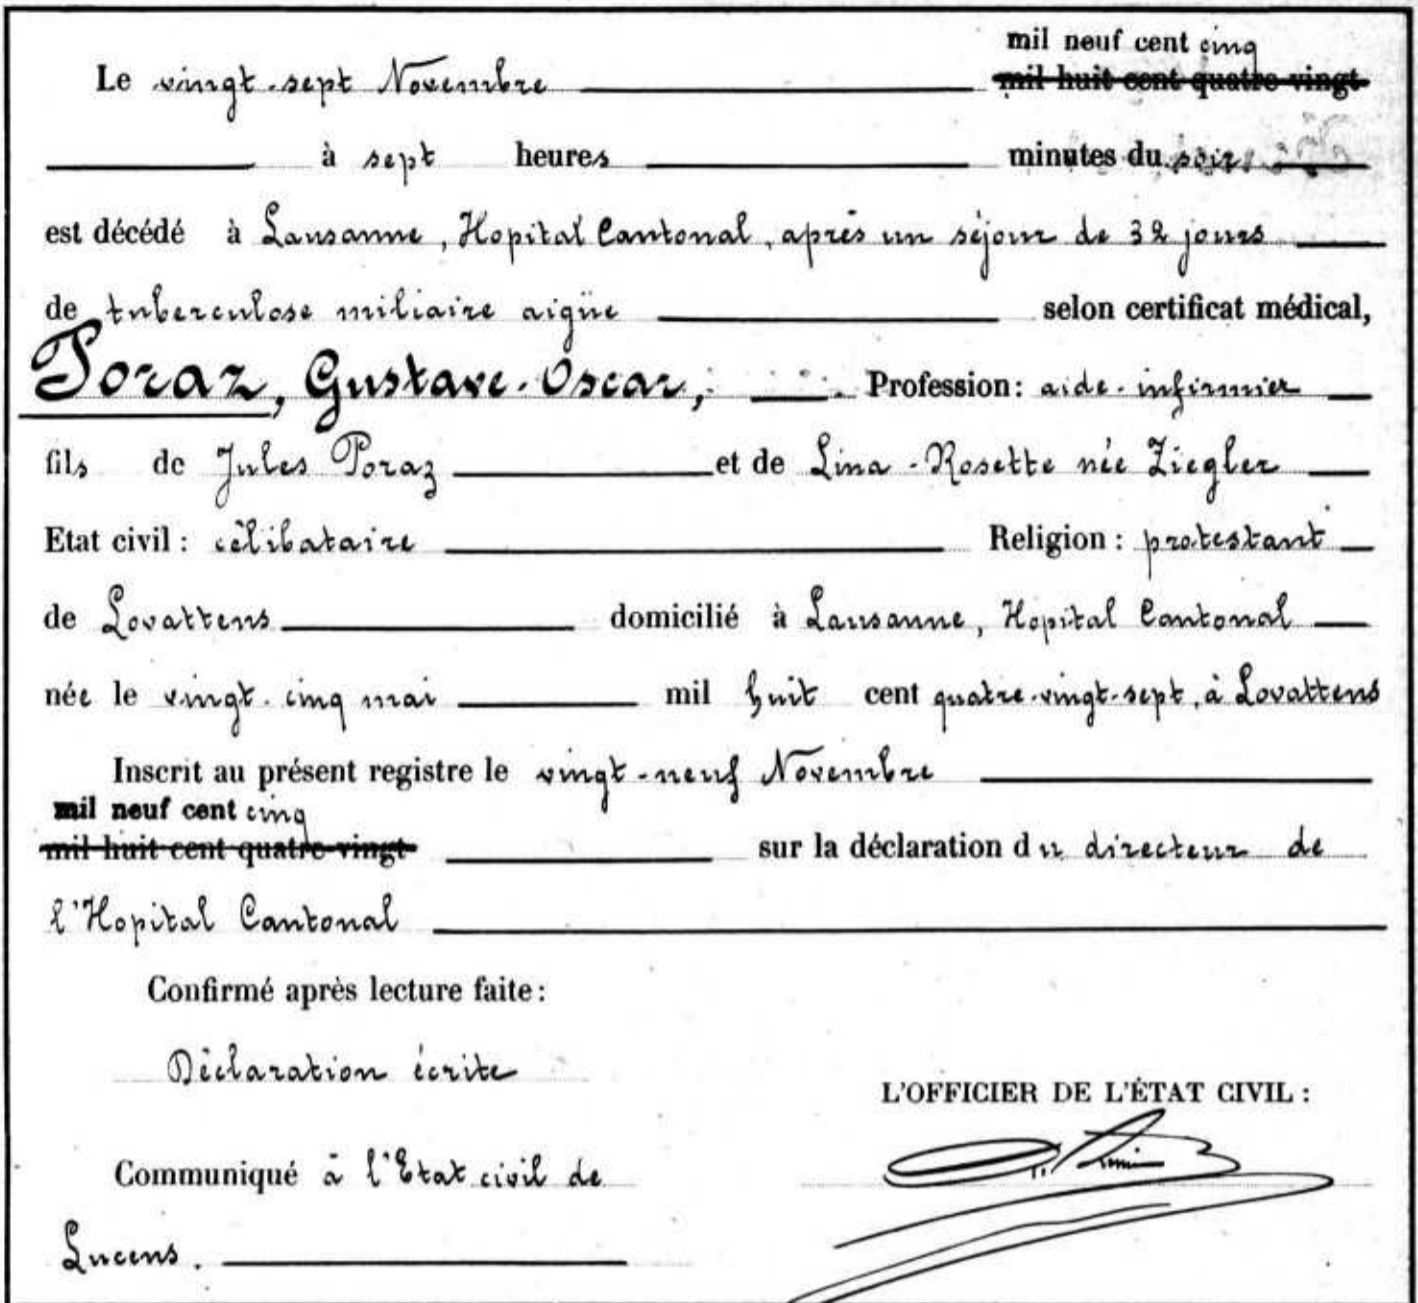 mil neuf cent cinq
Le vingt-sept Novembre mil huit cent quatre-vingt
à sept heures minutes du soir
est décédé à Lausanne, Hopital Cantonal, après un séjour de 32 jours
de tuberculose miliaire aigüe selon certificat médical,
Poraz, Gustave-Oscar, Profession: aide-infirmier
fils de Jules Poraz et de Lina-Rosette née Ziegler
Etat civil: célibataire Religion: protestant
de Lovattens domicilié à Lausanne, Hopital Cantonal
née le vingt-cinq mai mil huit cent quatre-vingt-sept, à Lovattens
Inscrit au présent registre le vingt-neuf Novembre
mil neuf cent cinq
mil huit cent quatre-vingt sur la déclaration du directeur de
l'Hopital Cantonal
Confirmé après lecture faite:
Déclaration écrite
L'OFFICIER DE L'ÉTAT CIVIL:
Communiqué à l'Etat civil de
Lucens.